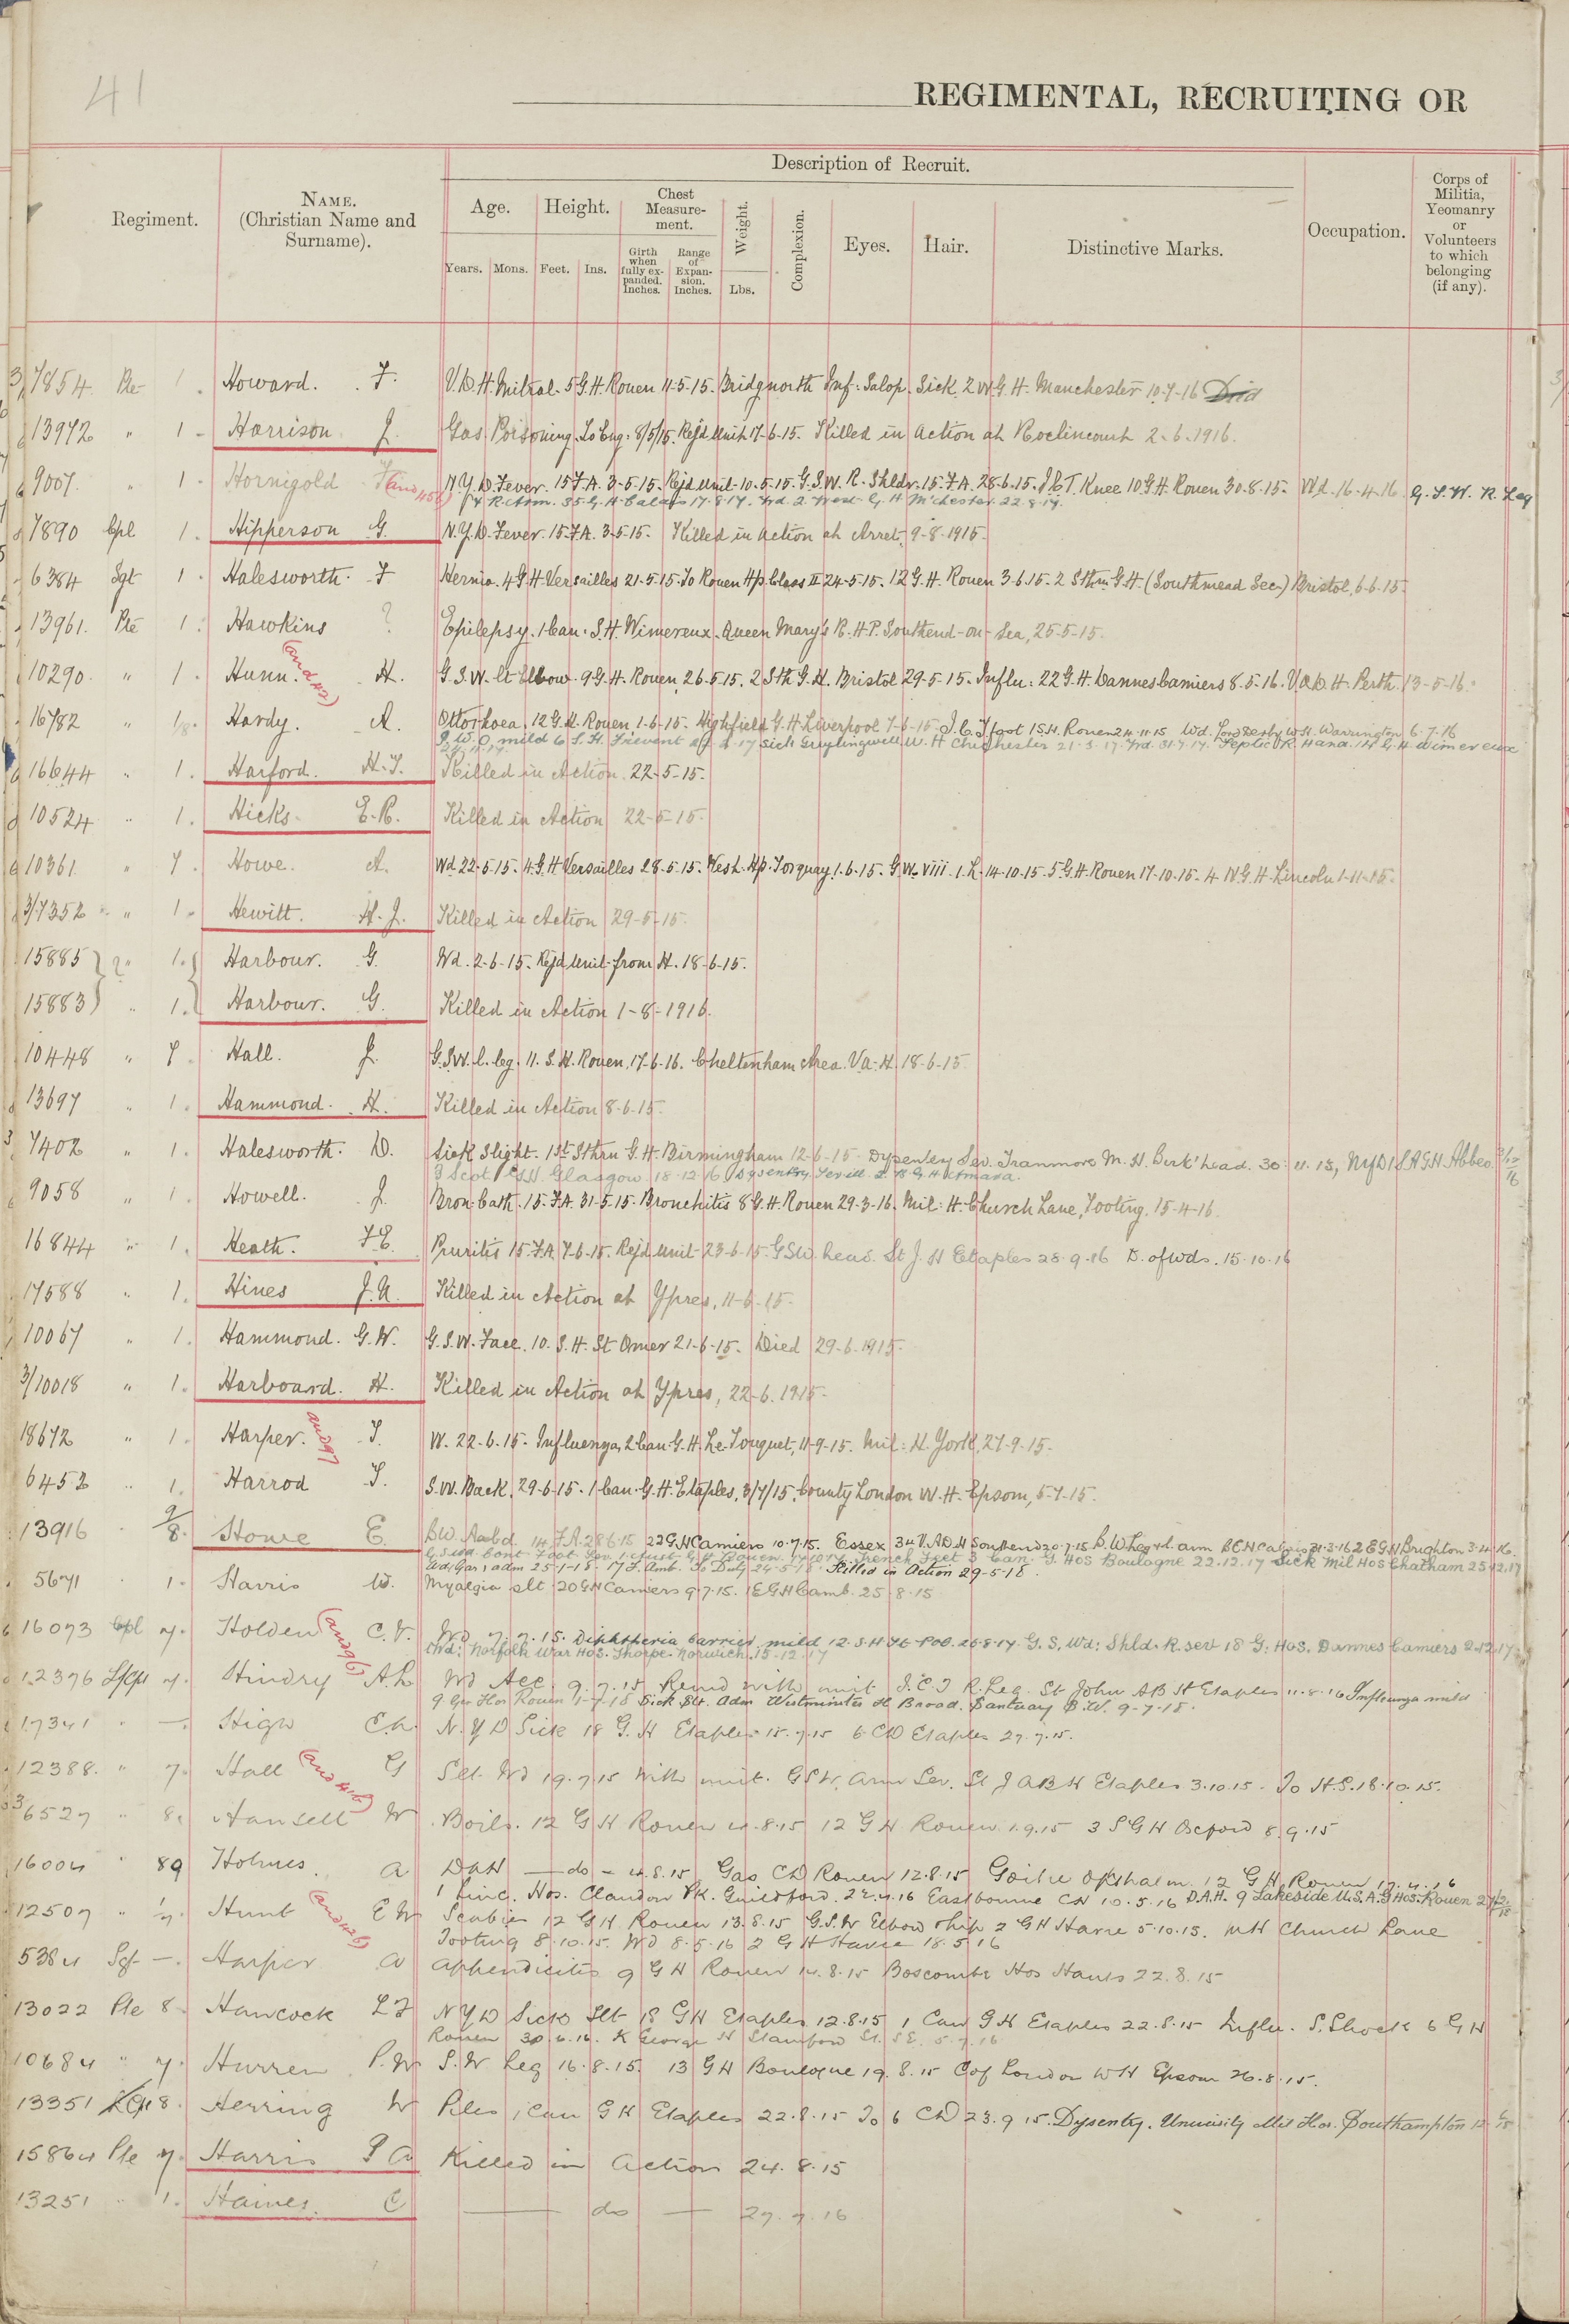 41
REGIMENTAL, RECRUITING OR
Regiment.
NAME.
(Christian Name and
Surname).
Description of Recruit.
Age.
Height.
Chest
Measure-
ment.
Weight.
Complexion.
Eyes.
Hair.
Distinctive Marks.
Occupation.
Corps of
Militia,
Yeomanry
or
Volunteers
to which
belonging
(if any).
Years.
Mons.
Feet.
Ins.
Girth
when
fully ex-
panded.
Inches.
Range
of
Expan-
sion.
Inches.
Lbs.
3/7854 Pte 1. Howard. F. V.D.H. Mitral. 5 G.H. Rouen 11-5-15. Bridgnorth Inf: Salop. Sick 2 W.G.H. Manchester 10-7-16
13972 " 1. Harrison J. Gas Poisoning. To Eng: 8/5/15. Rejd Unit 17-6-15. Killed in action at Roclincourt 2.6.1916.
9007. " 1. Hornigold N.Y.D. Fever. 15 F.A. 3-5-15. Rejd Unit 10-5-15. G.S.W. R. Shldr. 15. F.A. 28-6-15. I.C.T. Knee 10 G.H. Rouen 30-8-15. Wd. 16-4-16. G.S.W. R. Leg
35 G.H. Calais 17.8.17. 2 West G.H. M'chester 22.8.17.
7890 Cpl 1. Hipperson G. N.Y.D. Fever. 15. F.A. 3-5-15. Killed in action at 9-8-1915.
6384 Sgt 1. Halesworth. F Hernia. 4 G.H. Versailles 21-5-15. To Rouen Hp. Class II 24-5-15. 12 G.H. Rouen 3-6-15. 2 Sthn G.H. (Southmead Sec) Bristol, 6-6-15.
13961. Pte 1. Hawkins ? Epilepsy. 1 Can: S.H. Wimereux. Queen Mary's R.H.P. Southend-on-Sea, 25-5-15.
10290. " 1. Hunn. (and 42) H. G.S.W. lt Elbow. 9 G.H. Rouen, 26-5-15. 2 Sth G.H. Bristol 29-5-15. Influ: 22 G.H. Dannes Camiers 8.5.16. V.A.D.H. Perth. 13-5-16.
16782 " 1/8. Hardy. A. Ottorhoea. 12 G.H. Rouen, 1-6-15. Highfield G.H. Liverpool 7-6-15. I.C.T. foot 1 S.H. Rouen 24.11.15 Wd. Lord Derby W.H. Warrington 6.7.16
mild 6 S.H. Frevent Sick Graylingwell W.H. Chichester 21.3.17. Wd. 31.7.17. Septic R. Hand. 14 G.H. Wimereux
16644 " 1. Harford. H.T. Killed in Action. 22-5-15.
10524 " 1. Hicks. E.R. Killed in Action 22-5-15.
10361 " 7. Howe. A. Wd. 22-5-15. 4 G.H. Versailles 28-5-15. West. Hp. Torquay 1-6-15. G.W. viii. 1. L. 14-10-15. 5 G.H. Rouen 17-10-15. 4 N.G.H. Lincoln 1-11-15.
3/7352 " 1. Hewitt. H.J. Killed in Action 29-5-15.
15885 " 1. Harbour. G. Wd. 2-6-15. Rejd Unit from H. 18-6-15.
15883 " 1. Harbour. G. Killed in Action 1-8-1916.
10448 " 7. Hall. J. G.S.W. l. leg. 11. S.H. Rouen, 17-6-16. Cheltenham Area. Va. H. 18-6-15
13697 " 1. Hammond. H. Killed in Action 8-6-15.
3/7402 " 1. Halesworth. D. Sick Slight. 1st Sthrn G.H. Birmingham 12-6-15. Dysentery Sev. Tranmore M.H. Birk'head. 30.11.15, NYD 1 S A G H Abbev.
3 Scot. G.H. Glasgow. 18-12-16. Dysentry
9058 " 1. Howell. J. Bron: Cath. 15. F.A. 31-5-15. Bronchitis 8 G.H. Rouen 29-3-16. Mil: H. Church Lane, Tooting, 15-4-16.
16844 " 1. Heath. F.E. Pruritis 15. F.A. 7-6-15. Rejd Unit 23-6-15. GSW head. St J. H Etaples 28.9.16 D. of Wds. 15.10.16
17588 " 1. Hines J.A. Killed in Action at Ypres, 11-6-15.
10067 " 1. Hammond. G.W. G.S.W. Face. 10. S.H. St Omer 21-6-15. Died 29-6-1915.
3/10018 " 1. Harboard. H. Killed in Action at Ypres, 22-6.1915.
18672 " 1. Harper. (and 97) T. W. 22-6-15. Influenza, 2 Can: G.H. Le-Touquet, 11-9-15. Mil: H. York, 27-9-15.
6452 " 1. Harrod T. S.W. Back, 29-6-15. 1 Can: G.H. Etaples, 3/7/15. County London W.H. Epsom, 5-7-15.
13916 " 9/8. Howe E. BW. Aabd. 14 F.A. 28.6.15 22 GH Camiers 10.7.15. Essex 34 V.A.D.H Southend 20.7.15 B.W. Leg & l. arm B.E.H Calais 31.3.16 2 E G H Brighton 3.4.16.
Trench Feet 3 Can. G. Hos Boulogne 22.12.17 Sick Mil Hos Chatham 25.12.17
adm 25-1-18. 17 F. Amb. To Duty 24-5-18. Killed in Action 29-5-18.
5671 " 1. Harris W. Myalgia slt 20 GH Camiers 9.7.15. 1 E G H Camb. 25.8.15
16073 Cpl 7. Holden (and 96) C.V. Wd 7.7.15. Diphtheria Carrier mild 12. S.H St-Pol. 26.8.17. G.S. Wd: Shld. R. sev 18 G. Hos. Dannes Camiers 2.12.17
Norfolk War Hos. Thorpe. Norwich. 15-12-17
12376 L/Cpl 7. Hindry A.L. Wd Acc. 9.7.15 Remd with unit I.C.T R. Leg. St John AB H Etaples 11.8.16 Influenza mild
9 Gen Hos Rouen 1-7-18 Sick Slt. Adm Westminster H Broad. Santuary S.W. 9-7-18.
17341 " — High C.h. N.Y.D Sick 18 G.H Etaples 15.7.15 6 CD Etaples 27.7.15.
12388. " 7. Hall (and 416) G Slt. Wd 19.7.15 With unit. GSW. Arm Sev. St J A B H Etaples 3.10.15. To H.S. 18.10.15.
3/6527 " 8. Hansell W Boils. 12 G H Rouen 4.8.15 12 G H Rouen 1.9.15 3 S G H Oxford 8.9.15
16004 " 89 Holmes. A DAH — do — 4.8.15 Gas CD Rouen 12.8.15 Goitre 12 G H Rouen 17.4.16
1 Hos. Clandon Pk. Guildford. 22.4.16 Eastbourne CH 10.5.16 D.A.H. 9 Lakeside U.S.A.G Hos. Rouen
12507 " 1/7. Hunt (and 426) E W Scabies 12 G H Rouen 13.8.15 G.S.W Elbow & hip 2 G H Havre 5.10.15. MH Church Lane
Tooting 8.10.15. Wd 8.5.16 2 G H Havre 18.5.16
5384 Sgt — Harper A Appendicitis 9 G H Rouen 14.8.15 Boscombe Hos Hants 22.8.15
13022 Pte 8. Hancock L F N Y D Sick Slt 18 G H Etaples 12.8.15 1 Can G H Etaples 22.8.15 Influ. S. Shock 6 G H
Rouen 30.6.16. K George H Stamford St. S E. 5.7.16
10684 " 7. Hurren P. W S. W Leg 16.8.15. 13 G H Boulogne 19.8.15 C of London W H Epsom 26.8.15.
13351 8. Herring W Piles 1 Can G H Etaples 22.8.15 To 6 CD 23.9.15. Dysentry. University Mil Hos. Southampton
15864 Pte 7. Harris P A Killed in Action 24.8.15
13251 " 1. Haines. C — do — 27.7.16